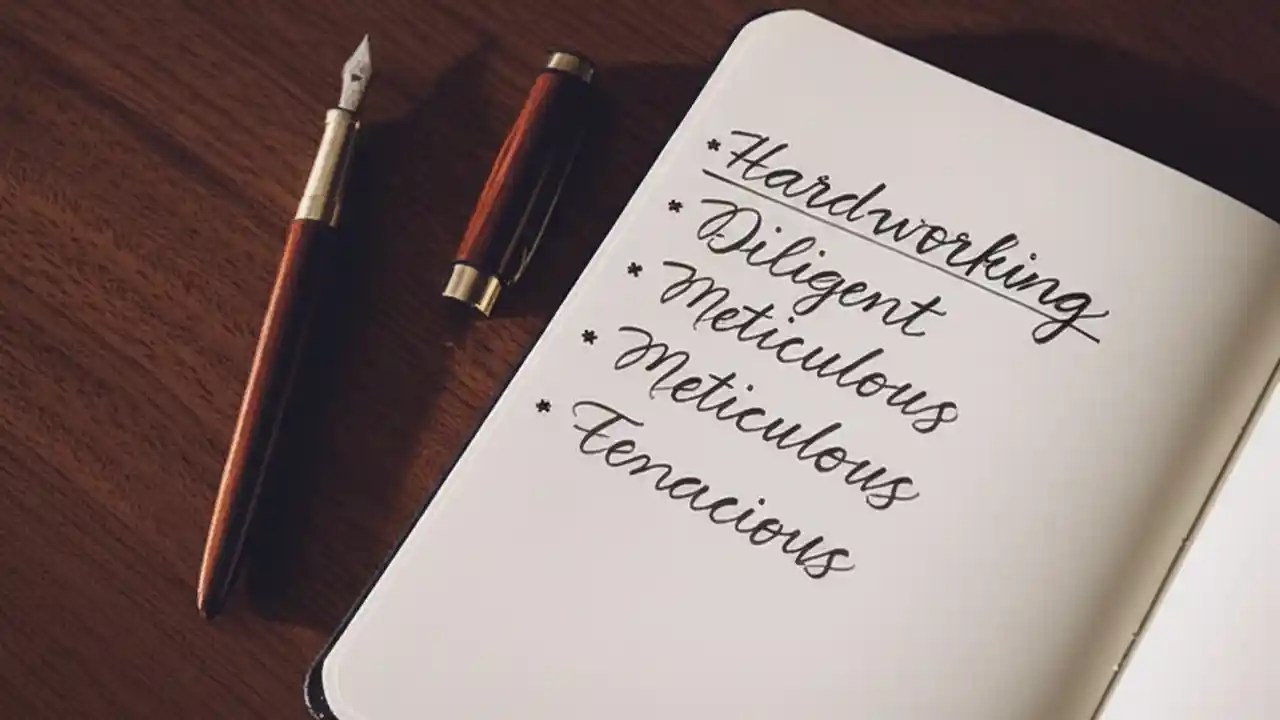 * Hardworking
* Diligent
* Meticulous
* Meticulous
* Tenacious